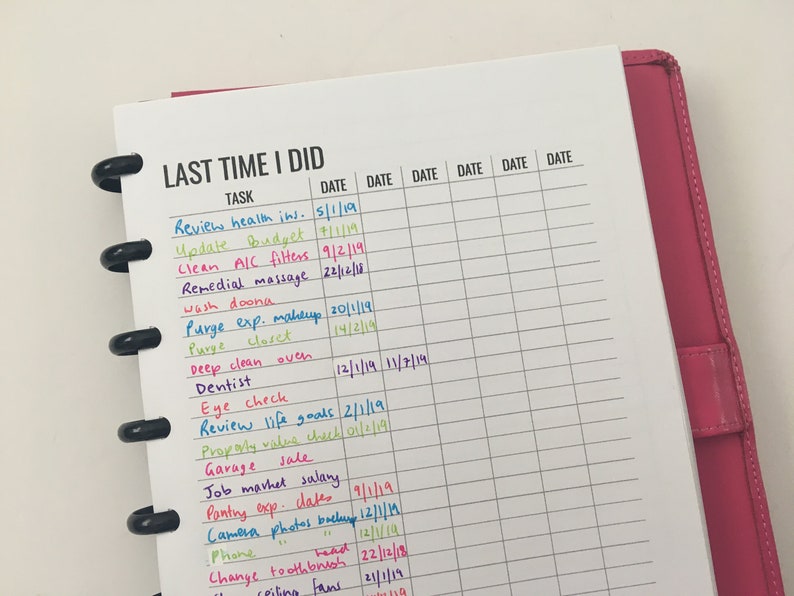 LAST TIME I DID
TASK DATE DATE DATE DATE DATE DATE
Review health ins. 5/1/19
Update Budget 7/1/19
Clean A/C filters 9/2/19
Remedial massage 22/12/18
wash doona
Purge exp. makeup 20/1/19
Purge closet 14/2/19
Deep clean oven
Dentist 12/1/19 11/7/19
Eye check
Review life goals 2/1/19
Property value check 01/2/19
Garage sale
Job market salary
Pantry exp. dates 9/1/19
Camera photos backup 12/1/19
Phone " " 12/1/19
Change toothbrush head 22/12/18
ceiling fans 21/1/19